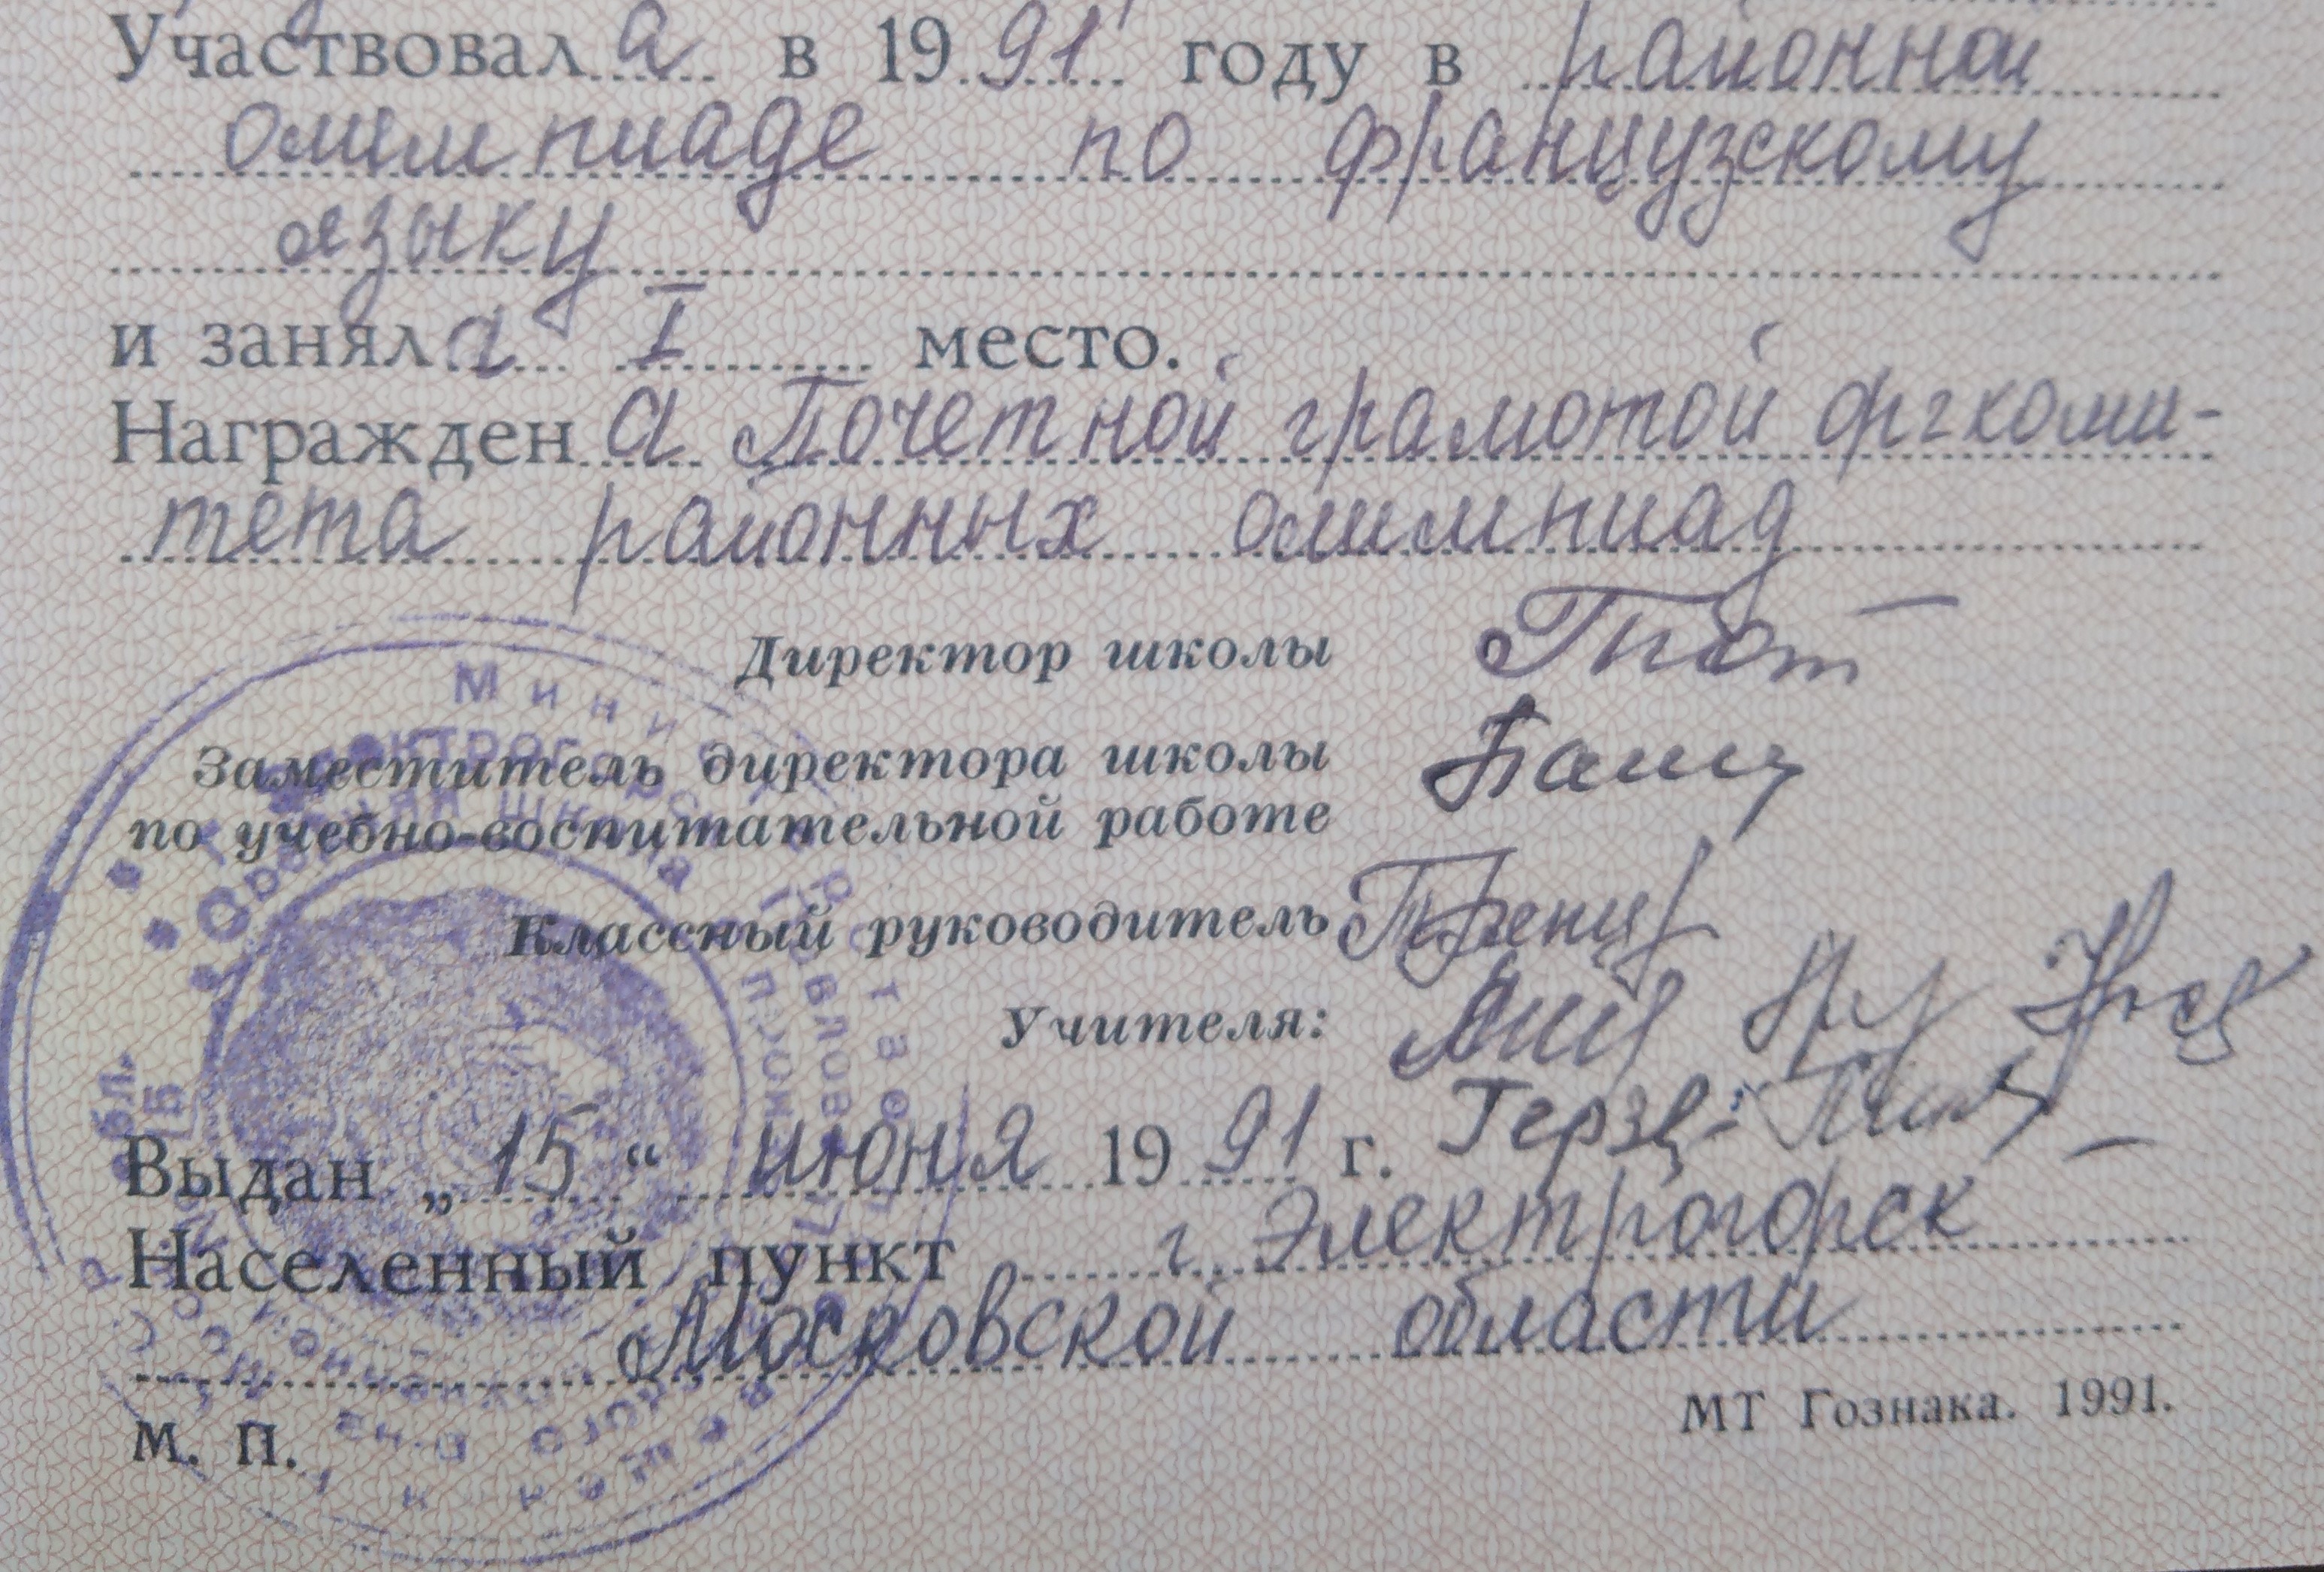 Участвовала в 1991 году в районной
олимпиаде по французскому
языку
и заняла I место.
Награждена Почетной грамотой оргкоми-
тета районных олимпиад
Директор школы
Заместитель директора школы
по учебно-воспитательной работе
Классный руководитель
Учителя:
Выдан „15“ июня 1991 г.
Населенный пункт г. Электрогорск
Московской области
М. П.
МТ Гознака. 1991.